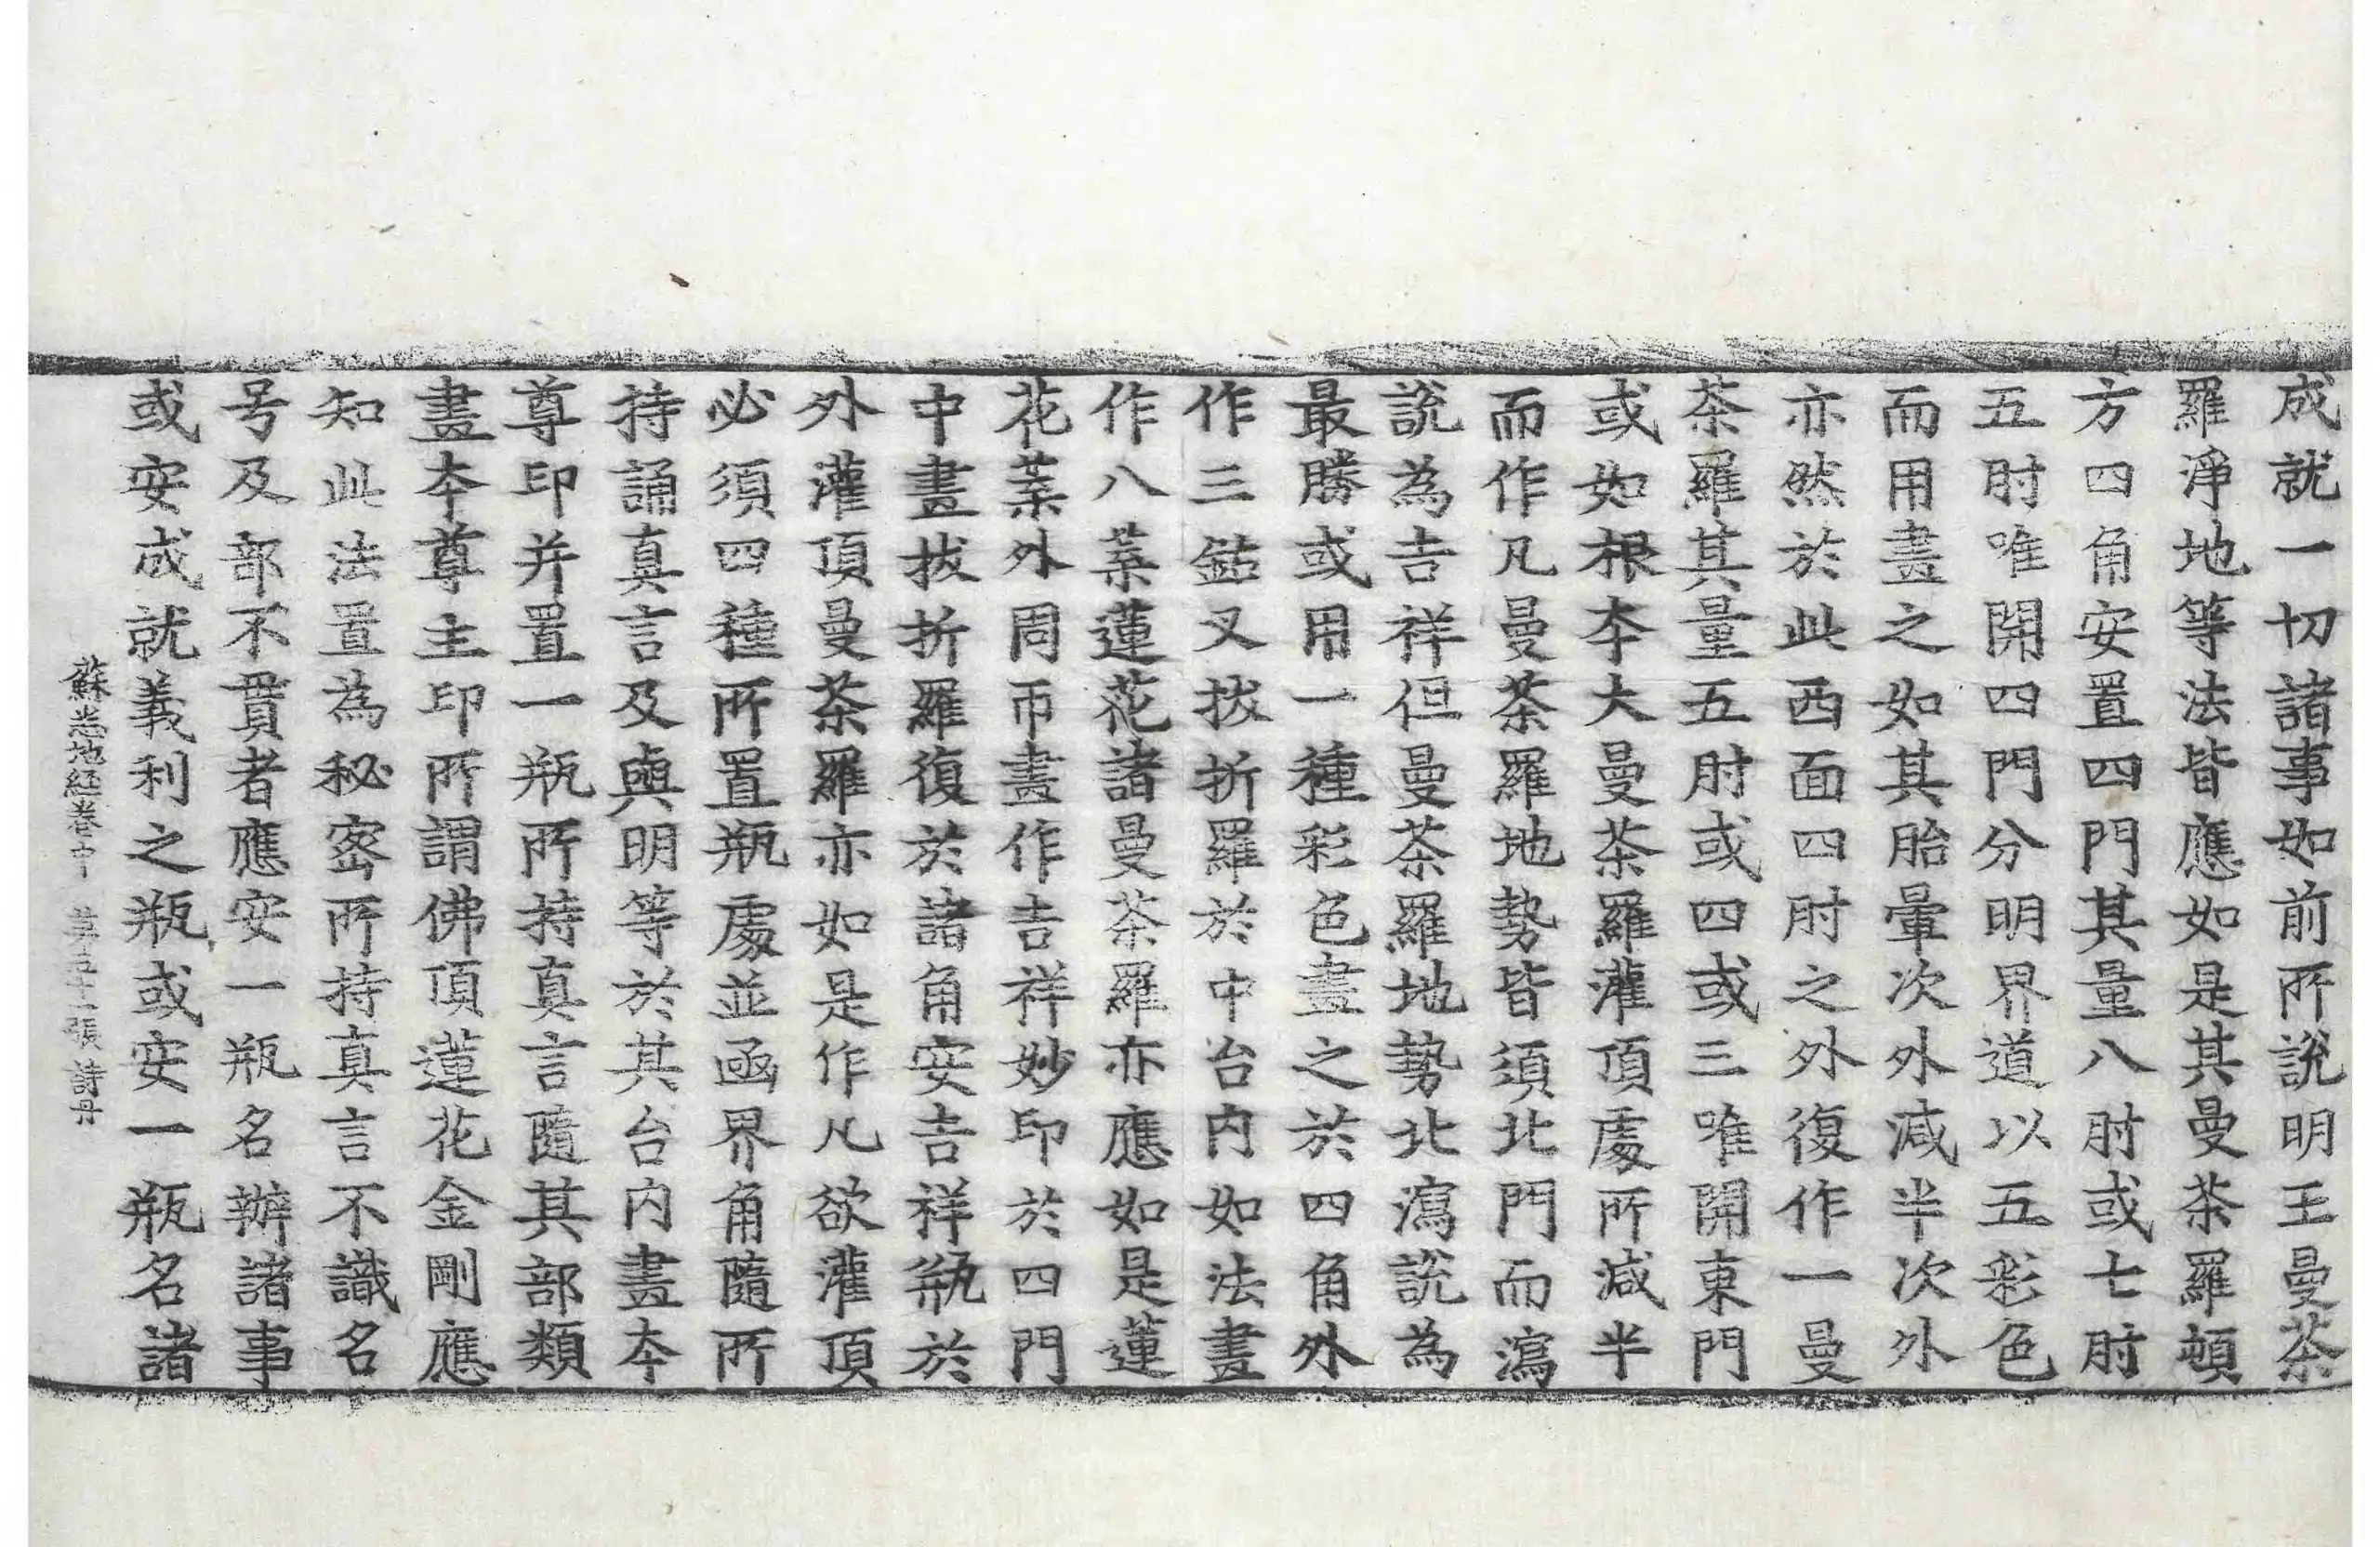 成就一切諸事如前所說明王曼荼
羅淨地等法皆應如是其曼荼羅頓
方四角安置四門其量八肘或七肘
五肘唯開四門分明界道以五彩色
而用畫之如其胎暈次外減半次外
亦然於此西面四肘之外復作一曼
荼羅其量五肘或四或三唯開東門
或如根夲大曼荼羅灌頂處所減半
而作凡曼荼羅地勢皆須北門而瀉
說為吉祥但曼荼羅地勢北瀉說為
最勝或用一種彩色畫之於四角外
作三鈷叉拔折羅於中台內如法畫
作八葉蓮花諸曼荼羅亦應如是蓮
花葉外周帀畫作吉祥妙印於四門
中畫拔折羅復於諸角安吉祥瓶於
外灌頂曼荼羅亦如是作凡欲灌頂
必須四種所置瓶處並函界角隨所
持誦真言及與明等於其台內畫夲
尊印并置一瓶所持真言隨其部類
畫夲尊主印所謂佛頂蓮花金剛應
知此法置為秘密所持真言不識名
号及部不貫者應安一瓶名辦諸事
或安成就義利之瓶或安一瓶名諸
蘇悉地経卷中 第五十一張 詩丹